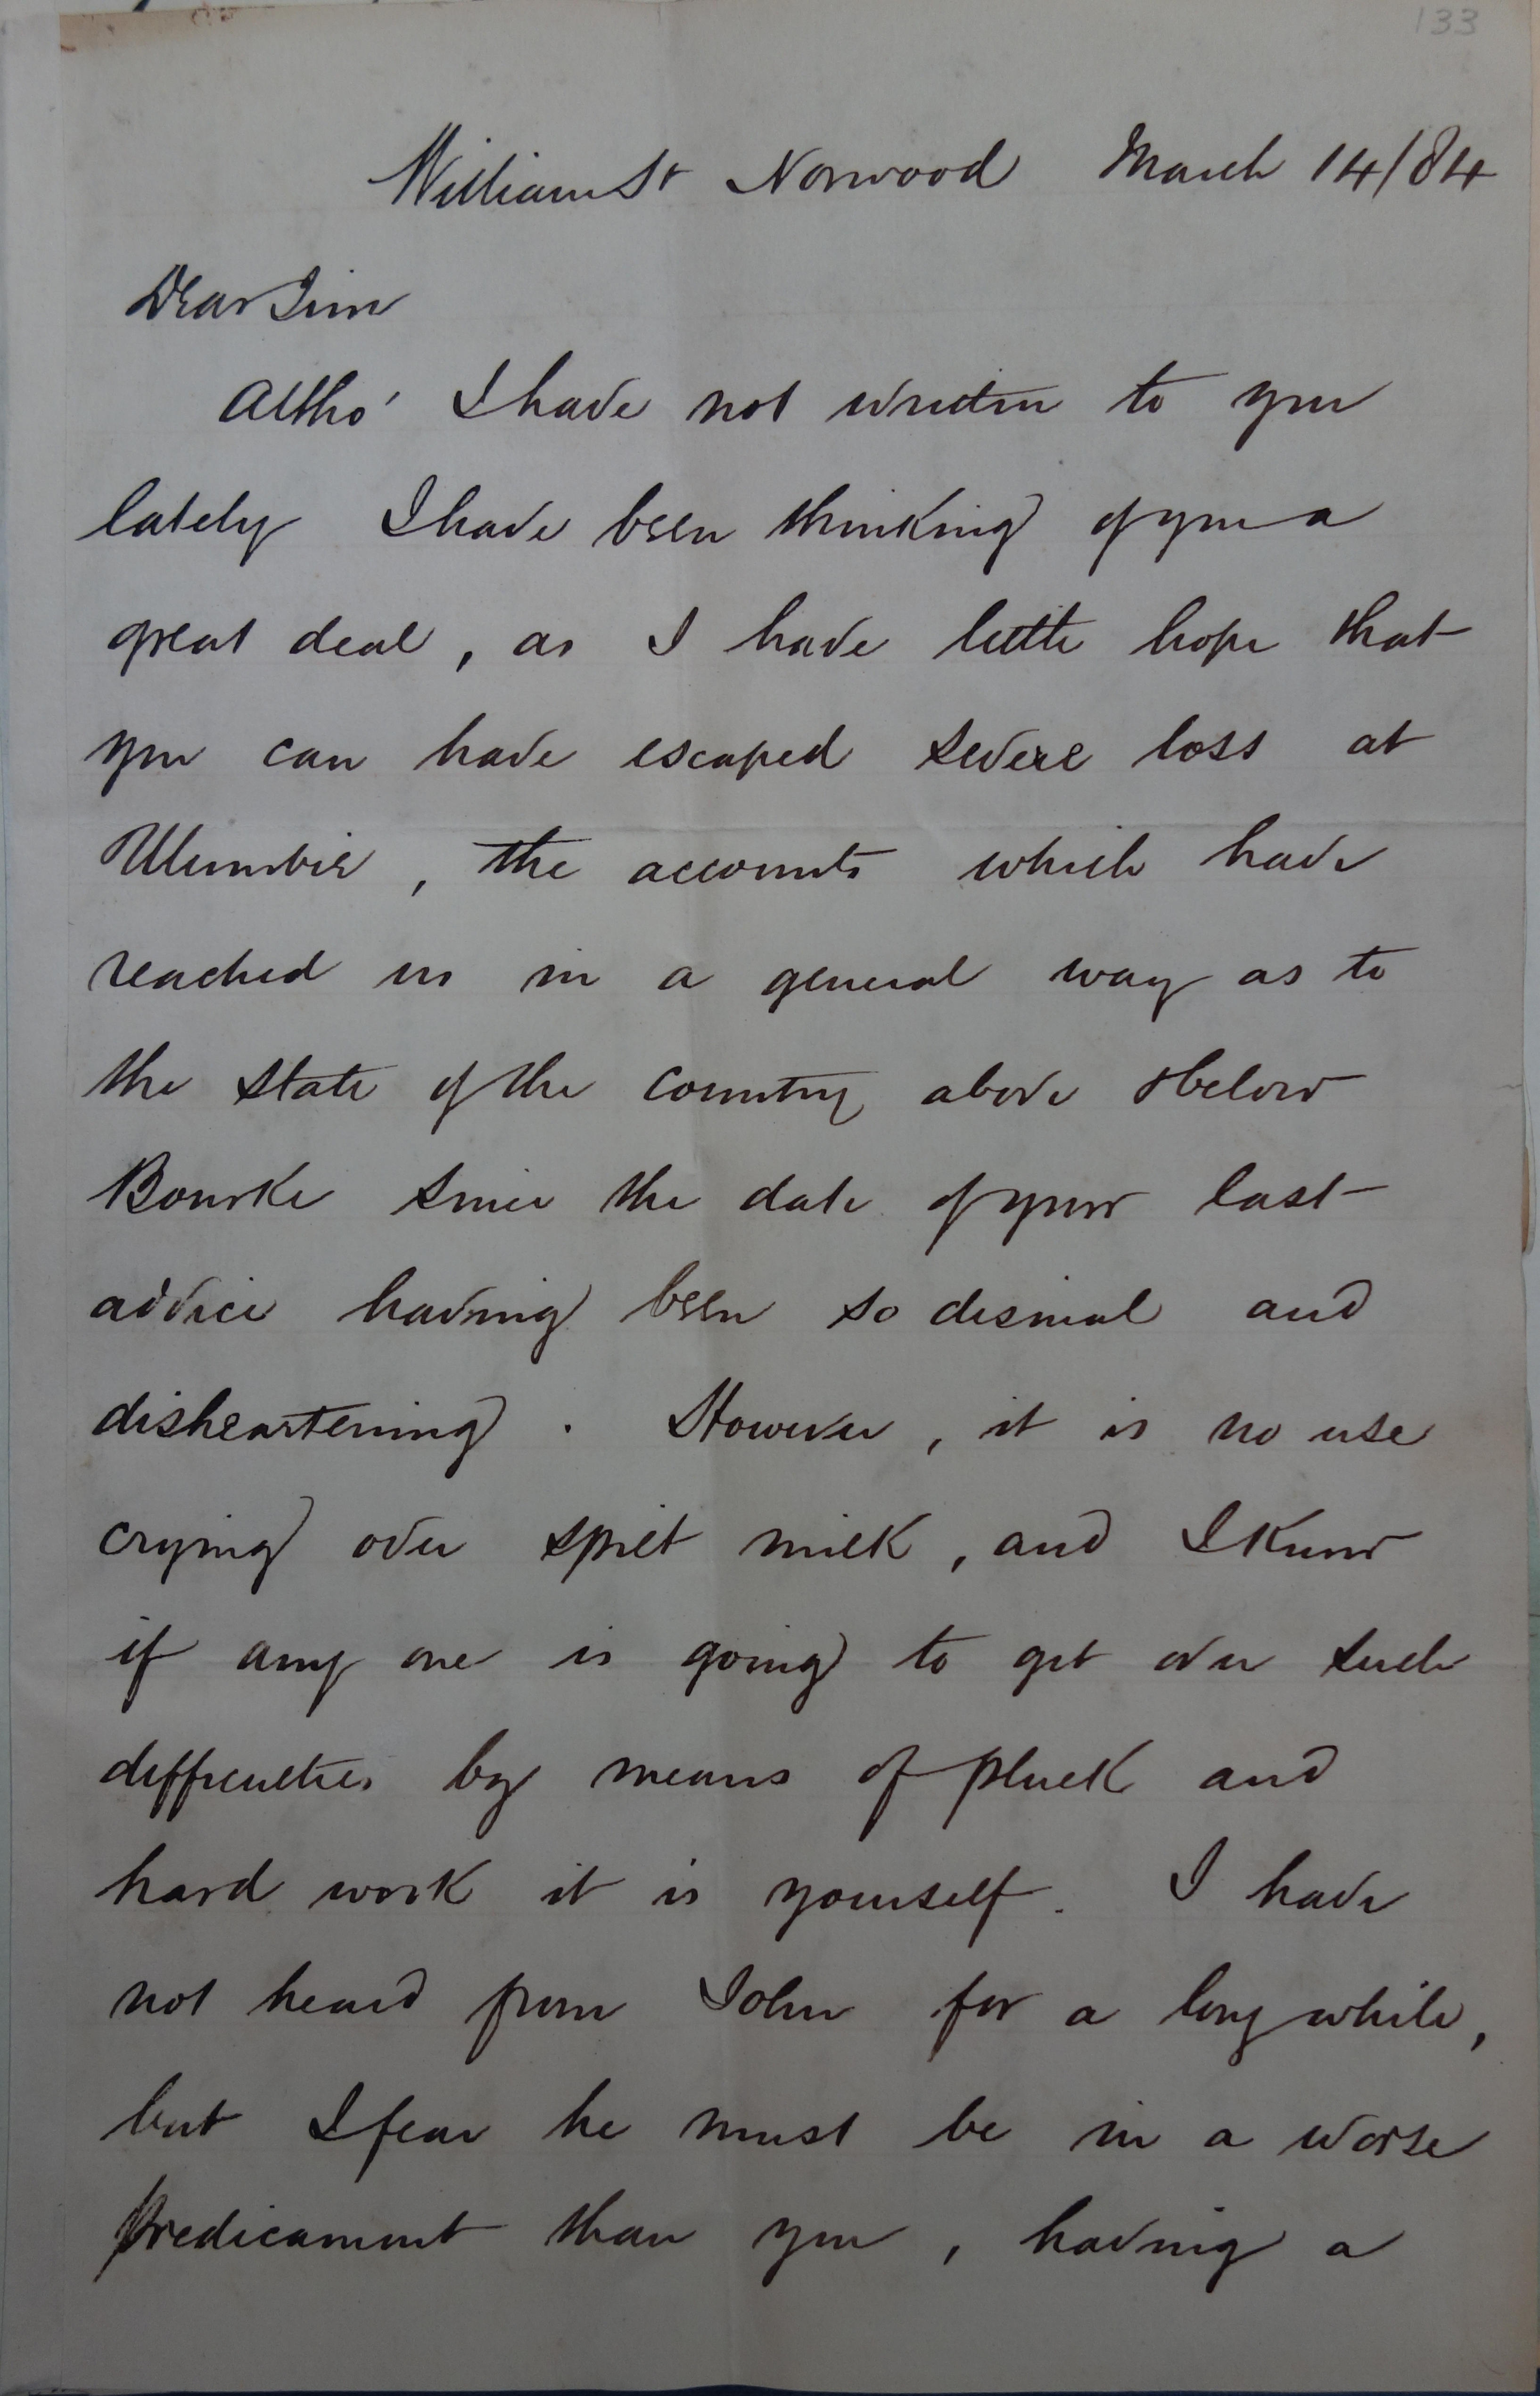 133
William St Norwood March 14/84
Dear Jim
Altho' I have not written to you
lately I have been thinking of you a
great deal, as I have little hope that
you can have escaped severe loss at
the accounts which have
reached us in a general way as to
the state of the country above & below
Bourke since the date of your last
advice having been so dismal and
disheartening. However, it is no use
crying over spilt milk, and I know
if any one is going to get over such
difficulties by means of pluck and
hard work it is yourself. I have
not heard from John for a long while,
but I fear he must be in a worse
predicament than you, having a